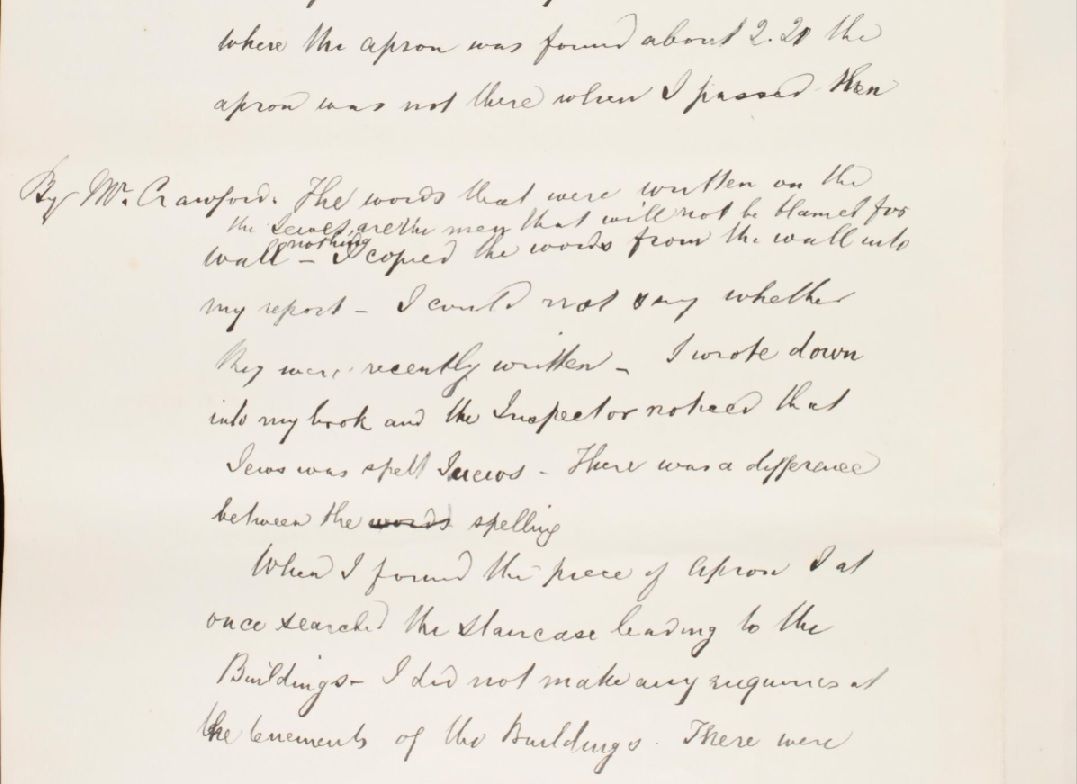 where the apron was found about 2.20 the
apron was not there when I passed then
By Mr. Crawford. The words that were written on the
the Jewes are the men that will not be blamed for
nothing
wall – I copied the words from the wall into
my report – I could not say whether
they were recently written – I wrote down
into my book and the Inspector noticed that
Jews was spelt Juews – There was a difference
between the words spelling
When I found the piece of apron I at
once searched the staircase leading to the
Buildings – I did not make any enquiries at
the tenements of the Buildings. There were